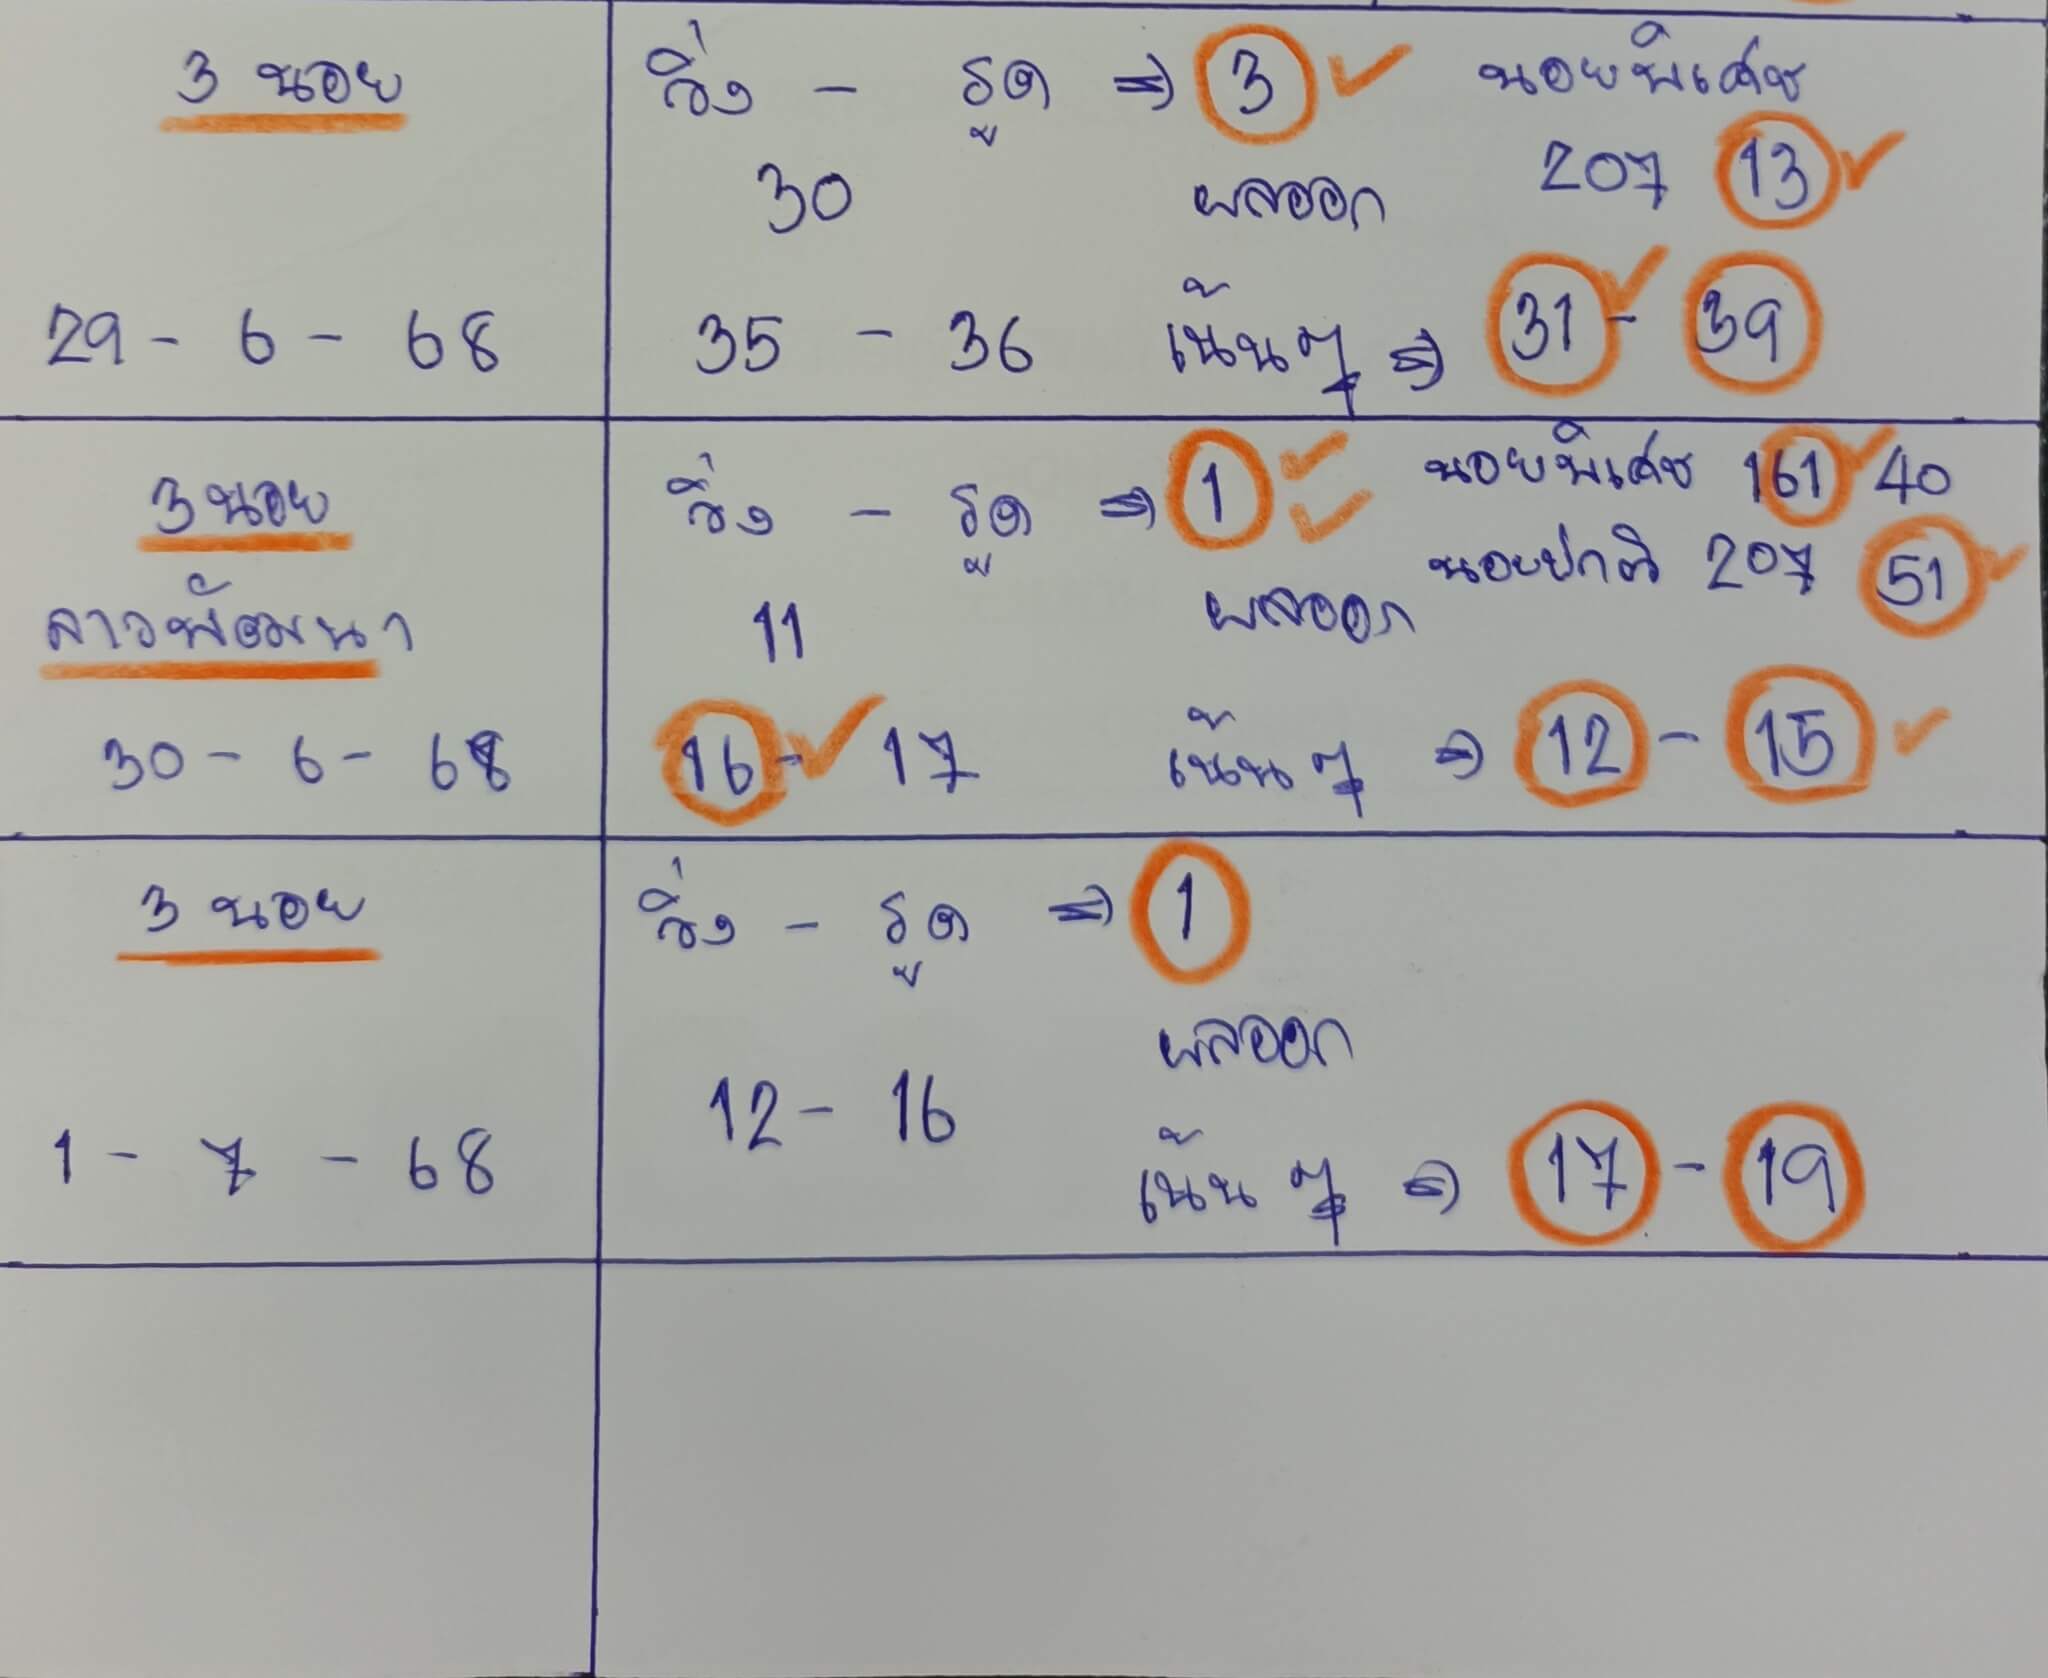 3 นอย
29 - 6 - 68
วิ่ง - รูด ⇒ 3 ✓ นอยพิเศษ
30 ผลออก 207 13 ✓
35 - 36 เน้นๆ ⇒ 31 ✓ - 39
3 นอย
ลาวพัฒนา
30 - 6 - 68
วิ่ง - รูด ⇒ 1 ✓✓ นอยพิเศษ 161 ✓ 40
นอยปกติ 207 51 ✓
11 ผลออก
16 - ✓ 17 เน้นๆ ⇒ 12 - 15 ✓
3 นอย
1 - 7 - 68
วิ่ง - รูด ⇒ 1
ผลออก
12 - 16
เน้นๆ ⇒ 17 - 19